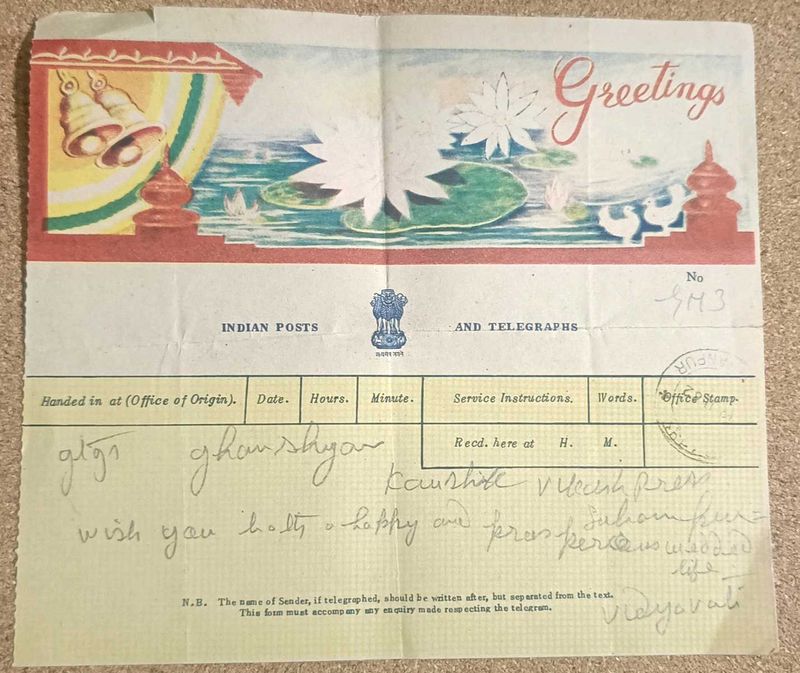 Greetings
No
GM3
INDIAN POSTS AND TELEGRAPHS
सत्यमेव जयते
Handed in at (Office of Origin). Date. Hours. Minute. Service Instructions. Words. Office Stamp.
Recd. here at H. M.
gtgs ghanshyam
Kaushik Vikash Press
wish you both a happy and prosperous wedded
life
Vidyavati
N.B. The name of Sender, if telegraphed, should be written after, but separated from the text.
This form must accompany any enquiry made respecting the telegram.